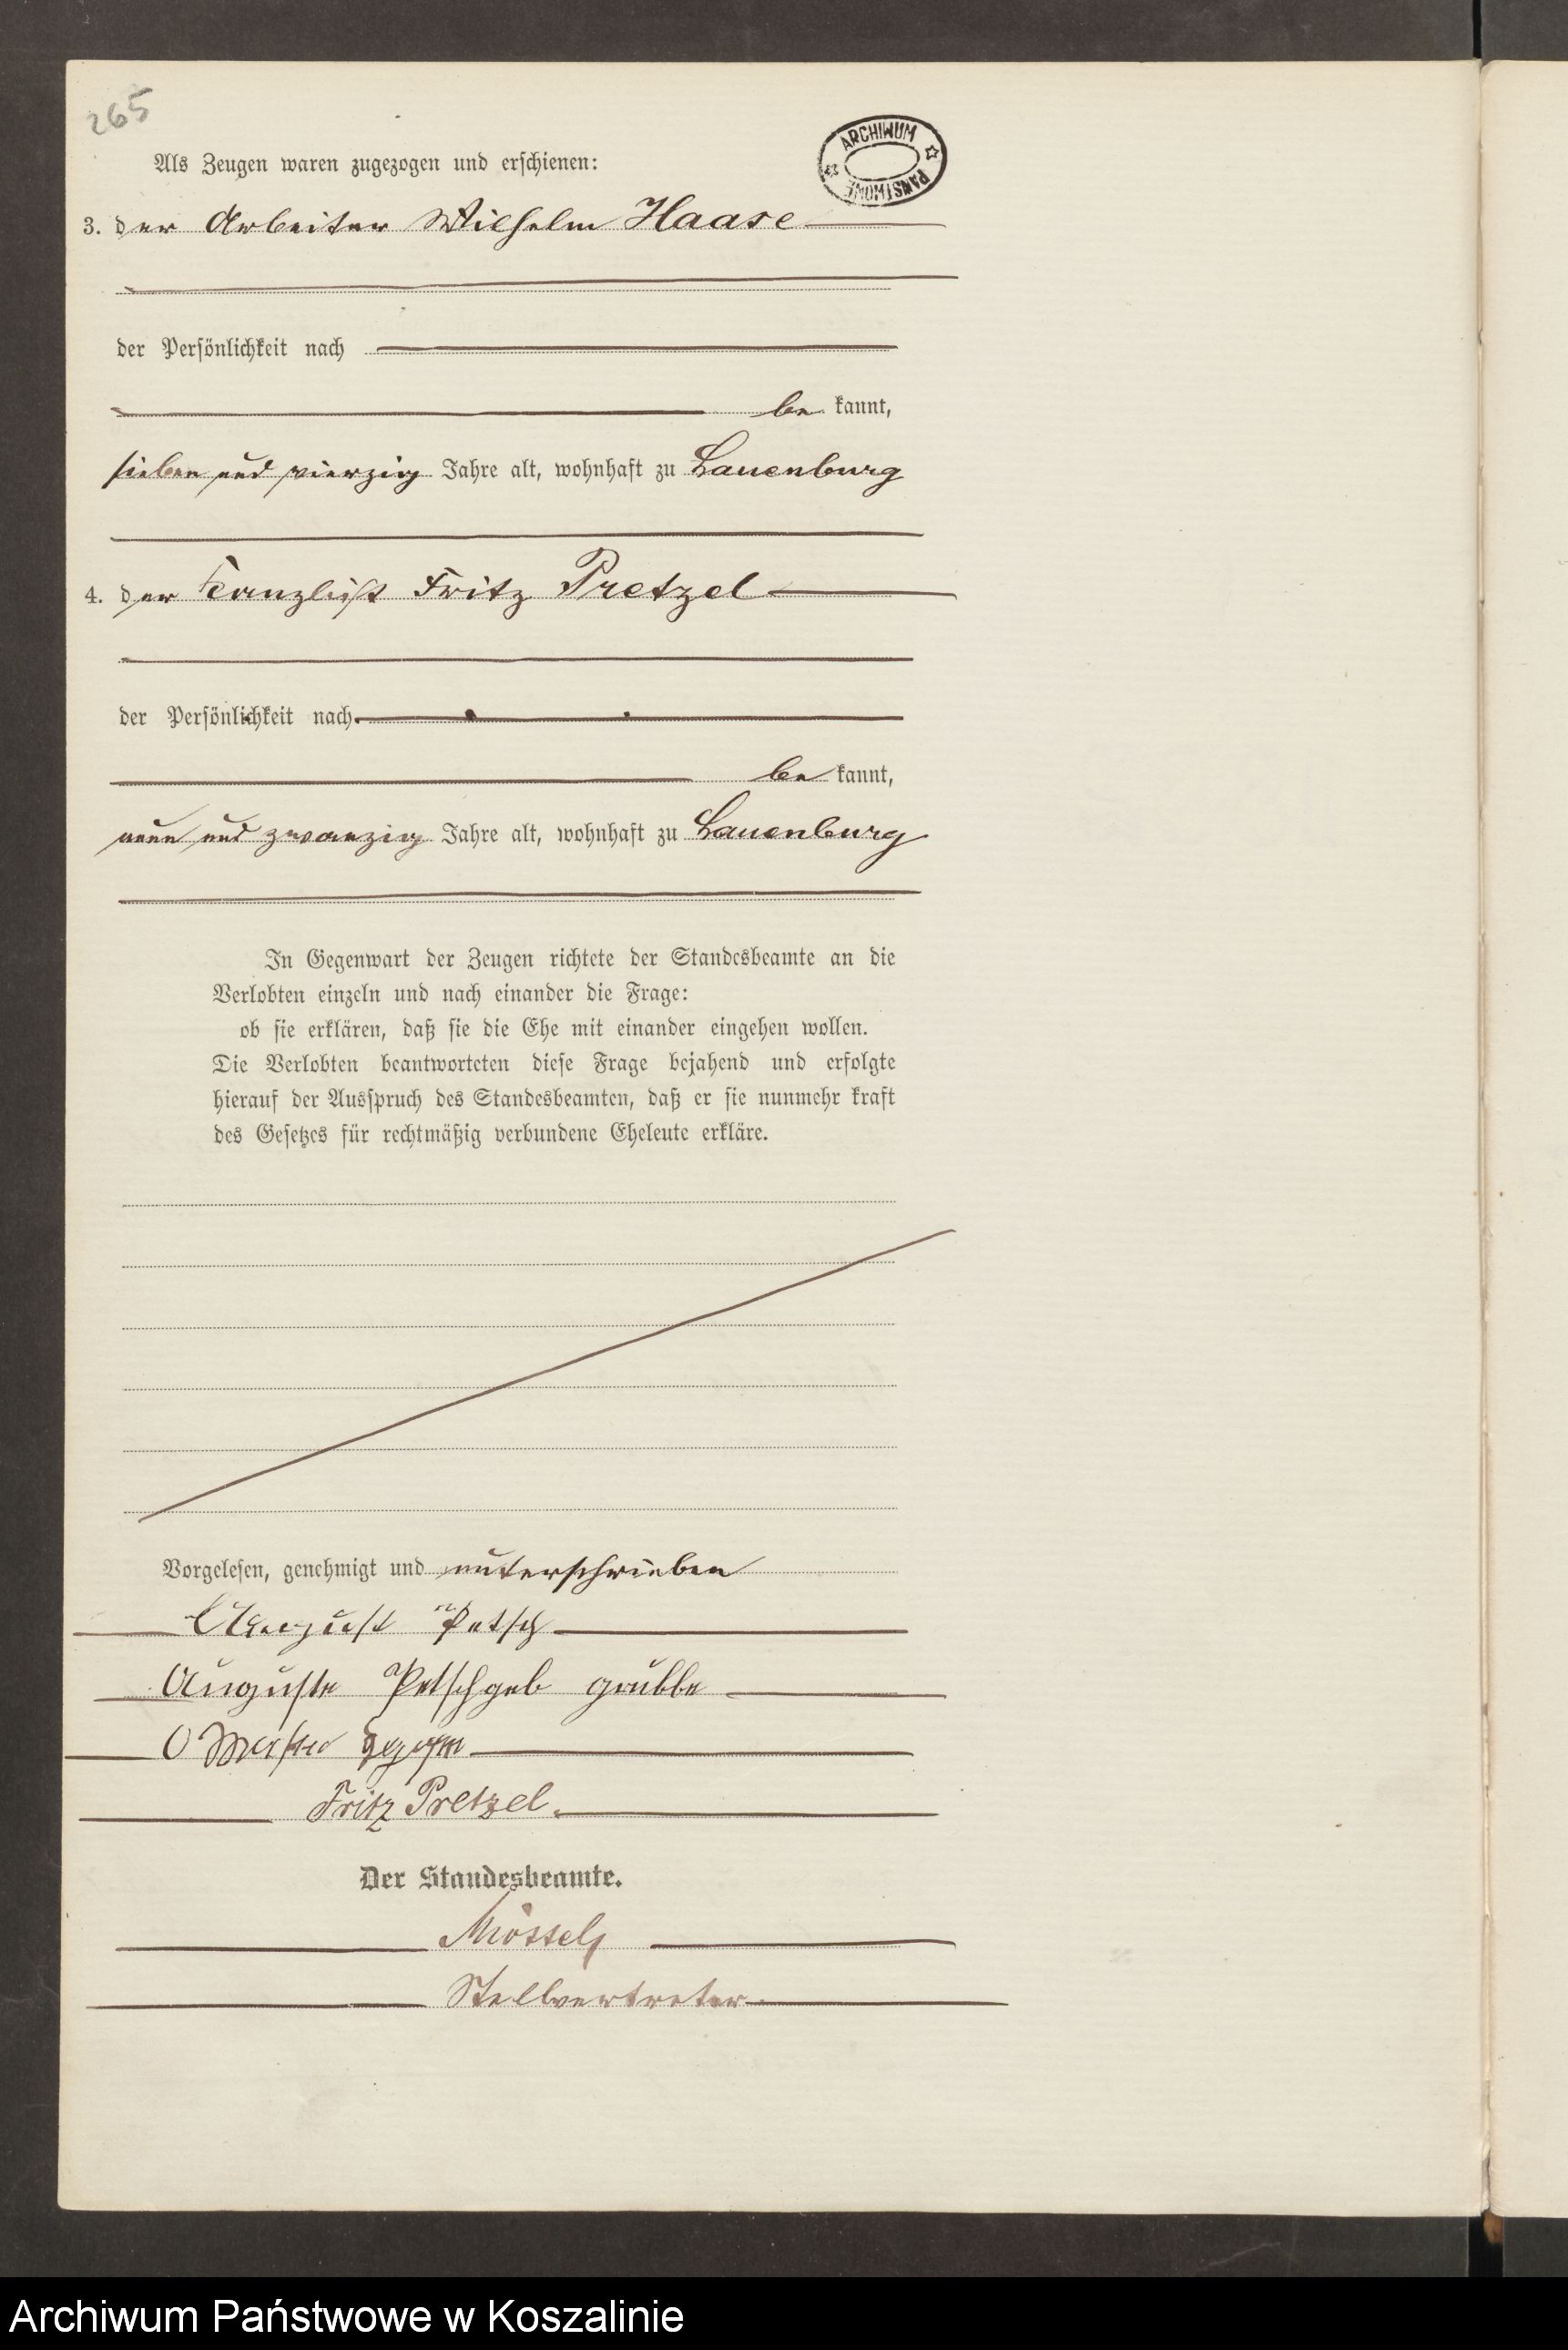 265
ARCHIWUM PAŃSTWOWE
Als Zeugen waren zugezogen und erschienen:
3. der Arbeiter Wilhelm Haase
der Persönlichkeit nach
be kannt,
sieben und vierzig Jahre alt, wohnhaft zu Lauenburg
4. der Kanzlist Fritz Pretzel
der Persönlichkeit nach
be kannt,
neun und zwanzig Jahre alt, wohnhaft zu Lauenburg
In Gegenwart der Zeugen richtete der Standesbeamte an die
Verlobten einzeln und nach einander die Frage:
ob sie erklären, daß sie die Ehe mit einander eingehen wollen.
Die Verlobten beantworteten diese Frage bejahend und erfolgte
hierauf der Ausspruch des Standesbeamten, daß er sie nunmehr kraft
des Gesetzes für rechtmäßig verbundene Eheleute erkläre.
Vorgelesen, genehmigt und unterschrieben
August Petsch
Auguste Petsch geb grubbe
Fritz Pretzel.
Der Standesbeamte.
Stellvertreter
Archiwum Państwowe w Koszalinie